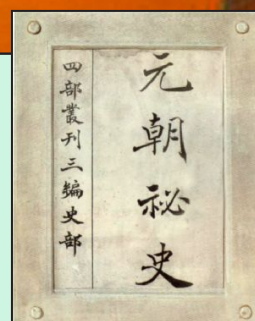 元朝秘史
四部叢刊三編史部